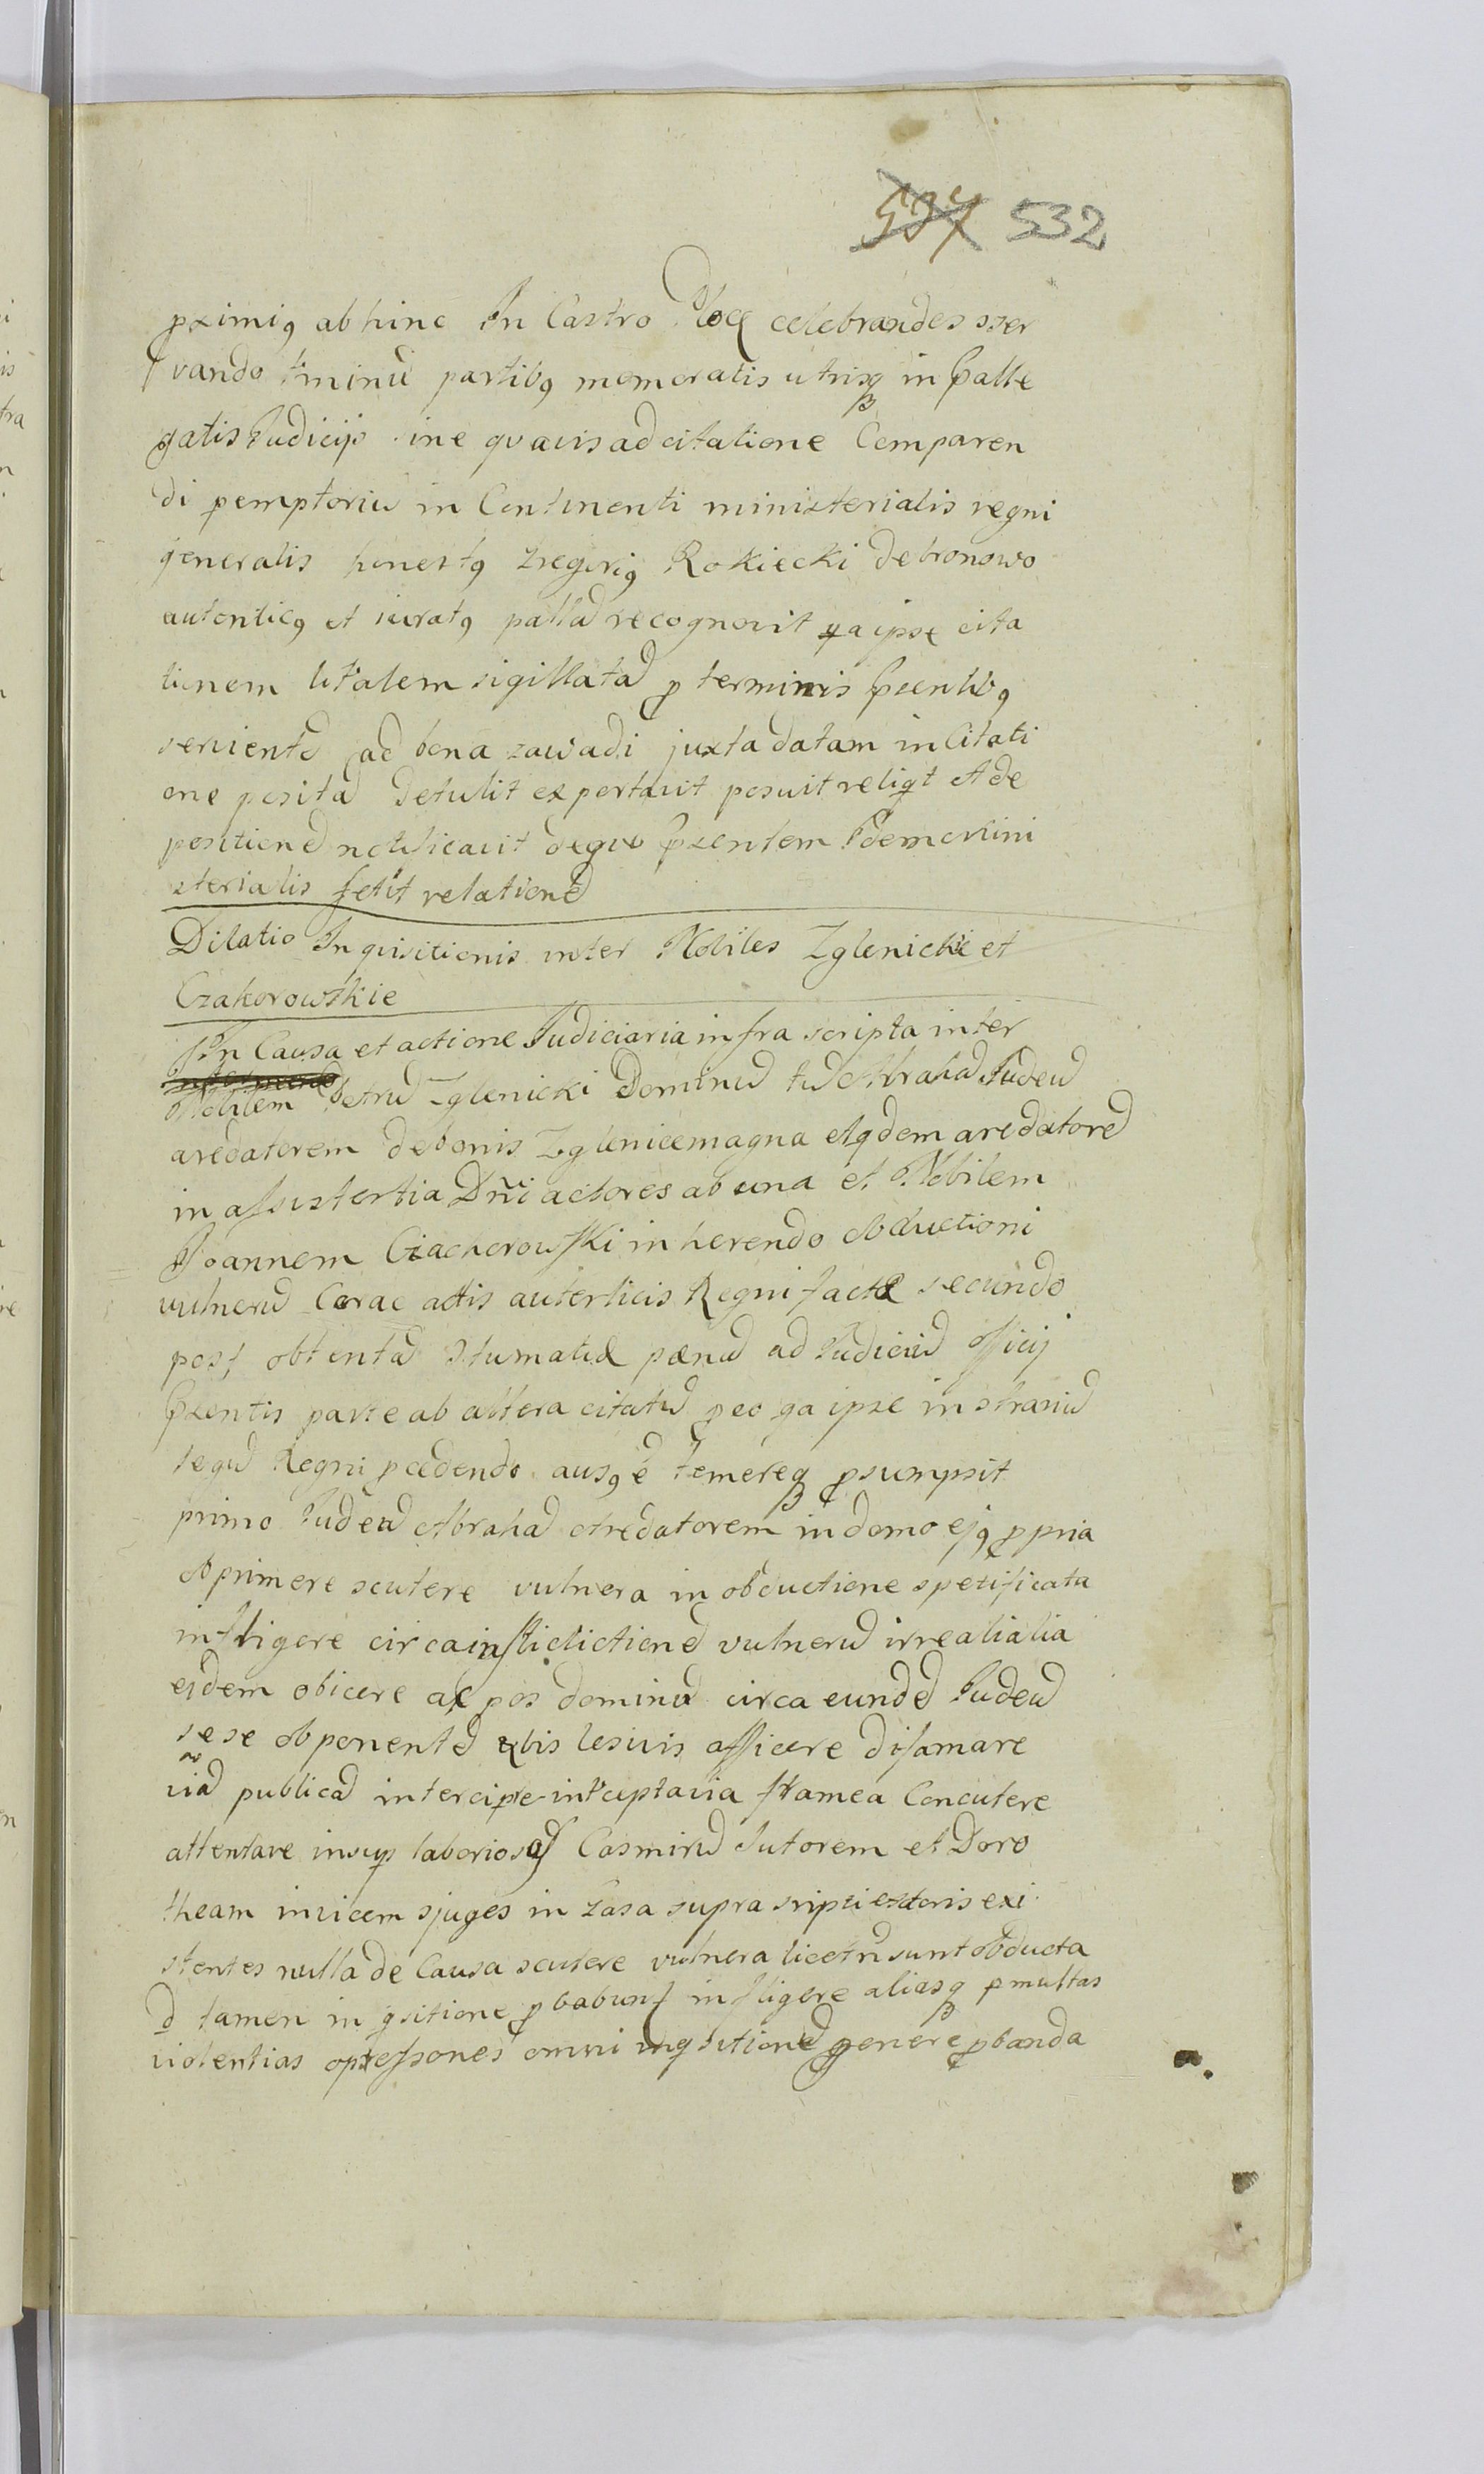 537 532
pximis abhinc In Castro Ploc celebrandos sser
vando tminu partibs memoratis utrisq in pralle
gatis Judicijs sine quavis adcitatione Comparen
di pemptoriu in Continenti ministerialis regni
generalis honestg Zregorig Rokiecki de bronowo
autenticg et iuratg palla recognovit qa ipse cita
tionem lit'alem sigillatã p terminis psentibg
servientẽ ad bona zawadi juxta datam in Citati
one positã detulit exportavit posuit reliqt et de
positionẽ notificavit de quo psentem Idem Mini
sterialis fecit relationẽ
Dilatio Inquisitionis inter Nobiles Zglenickie et
Czahorowskie
In Causa et actione Judiciaria infra scripta inter
Nobilem Petrũ Zglenicki Dominũ tũ Abrahã Judeũ
aredatorem de bonis Zglenice magna eiqdem aredatorẽ
in assistentia Dñi actores ab una et Nobilem
Joannem Czachorowski inherendo obductioni
vulnerũ Corac actis autenticis Regni factæ secundo
post obtentã pænũ ad Judiciũ officij
psentis parte ab altera citatũ p eo qa ipse in
legũ Regni pcedendo ausg ẽ temereq psumpsit
primo Judeũ Abrahã Aredatorem in domo ejg ppria
Opprimere scutere vulnera in obductione spetificata
infligere circa vulnerũ irrealialia
eidem obicere ac pos dominũ circa eundẽ Judeũ
sese opponentẽ vbis lesivis afficere difamare
viã publicã intercipere int'ceptavia framea Concutere
attentare insup laboriosos Casmirũ Sutorem et Doro
theam invicem cjuges in Casa supra sripti actoris exi
stentes nulla de Causa scutere vulnera licet ñ sunt obducta
ɖ tamen inqsitione pbabunt infligere aliasq pmultas
violentias opressones omni inqsitionẽ genere pbanda